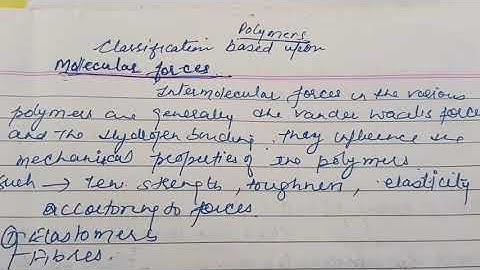 Polymers
Classification based upon
Molecular forces
Intermolecular forces in the various
polymers are generally the vander waals forces
and the Hydrogen bonding. They influence the
mechanical properties of the polymers
such → ten. strength, toughness, elasticity
according to forces.
① Elastomers
Fibres.